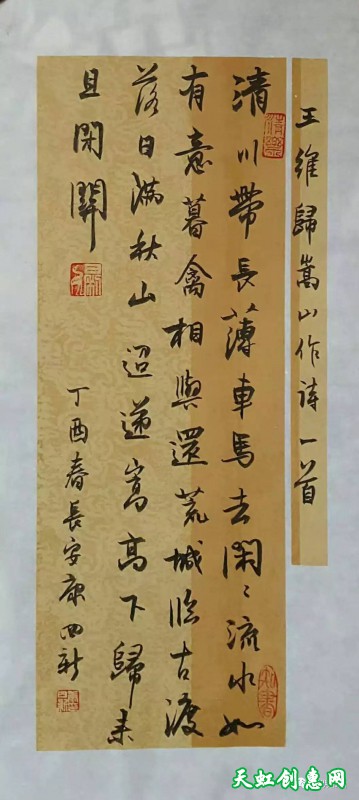 王維歸嵩山作诗一首
清川帶長薄車馬去閑〻流水如
有意暮禽相與還荒城臨古渡
落日滿秋山迢递嵩高下歸来
且閑關
丁酉春長安康四新
天虹创惠网